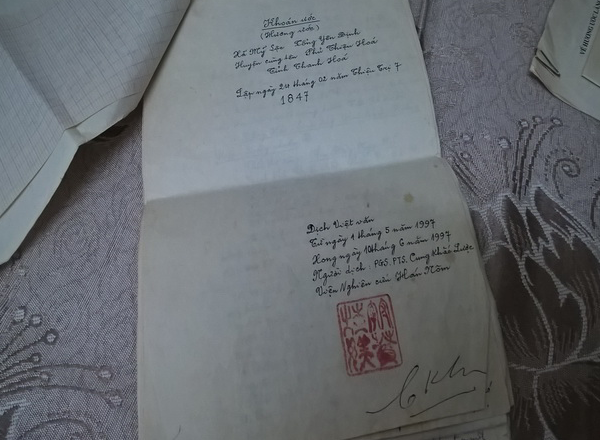 Khoán ước
(Hương ước)
Xã Mỹ Lộc Tổng Yên Định
Huyện cùng tên Phủ Thiệu Hoá
Tỉnh Thanh Hoá
Lập ngày 24 tháng 02 năm Thiệu Trị 7
1847
Dịch Việt văn
Từ ngày 1 tháng 5 năm 1997
Xong ngày 10 tháng 6 năm 1997
Người dịch: PGS. PTS. Cung Khắc Lược
Viện Nghiên cứu Hán Nôm